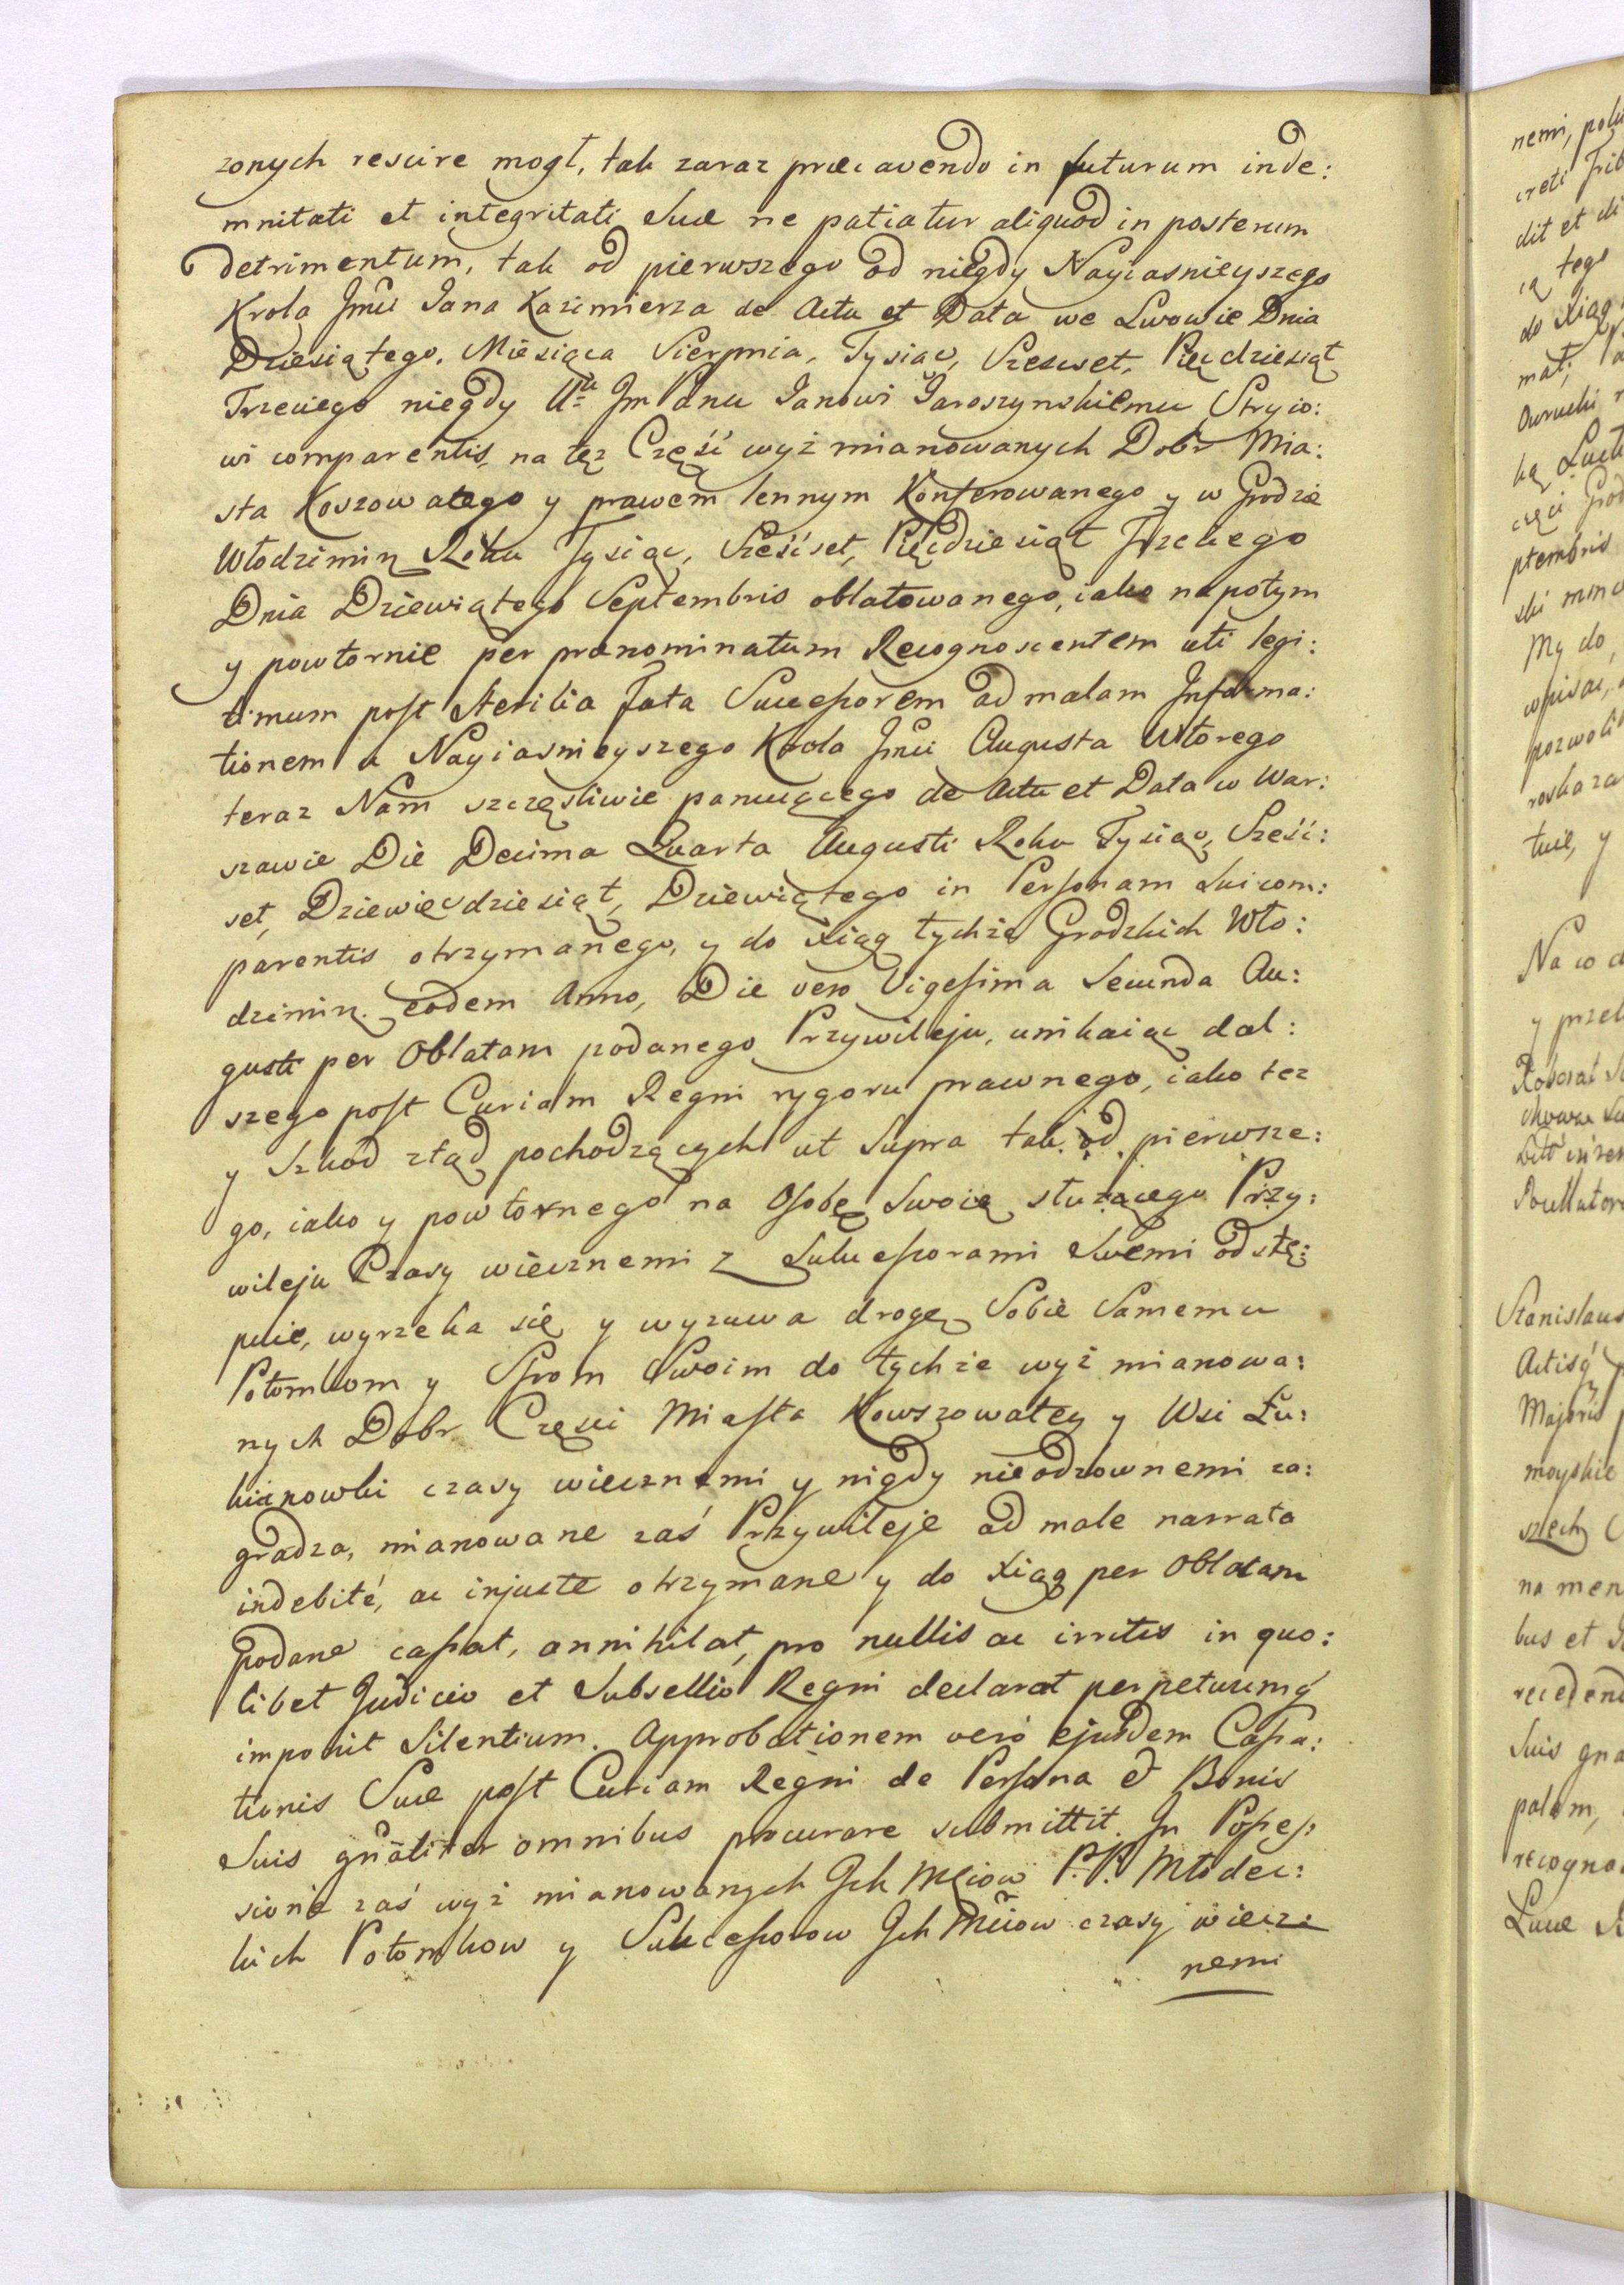 zonych rescire mogł, tak zaraz præcavendo in futurum inde:
mnitati et integritati Suæ ne patiatur aliquod in posterum
detrimentum, tak od pierwszego od niegdy Nayiasnieyszego
Krola Jmći Jana Kazimierza de Actu et Data we Lwowie Dnia
Dziesiątego, Miesiąca Sierpnia, Tysiąc, Szescset, Pięcdziesiąt
Trzeciego niegdy Jm Panu Janowi Jaroszynskiemu Stryio:
wi comparentis, na tęz Część wyż mianowanych Dobr Mia:
sta Koszowatego y prawem lennym Konferowanego y w Grodzie
Włodzimin Roku Tysiąc, Sześćset, Pięcdziesiąt Trzeciego
Dnia Dziewiątego Septembris oblatowanego, iako napotym
y powtornie per prænominatum Recognoscentem uti legi:
timum post Sterilia Fata Successorem ad malam Informa:
tionem a Nayiasnieyszego Krola Jmći Augusta Wtorego
teraz Nam szczęsliwie panuiącego de Actu et Data w War:
szawie Die Decima Quarta Augusti Roku Tysiąc, Sześć:
set, Dziewięcdziesiąt, Dziewiątego in Personam Sui com:
parentis otrzymanego, y do Xiąg tychże Grodzkich Wło:
dzimin. eodem Anno, Die vero Vigesima Secunda Au:
gusti per Oblatam podanego Przywileju, unikaiąc dal:
szego post Curiam Regni rygoru prawnego, iako tez
y Szkod ztąd pochodzących ut Supra tak od pierwsze:
go, iako y powtornego na Osobę Swoię służącego Przy:
wileju Czasy wiecznemi z Sukcessorami Swemi odstę:
puie, wyrzeka się y wyzuwa drogę Sobie Samemu
Potomkom y Ssrom Swoim do tychże wyż mianowa:
nych Dobr Częsci Miasta Kowszowatey y Wsi Łu:
kianowki czasy wiecznemi y nigdy nieodzownemi za:
gradza, mianowane zaś Przywileje ad male narrata
indebité, ac injuste otrzymane y do Xiąg per Oblatam
podane cassat, annihilat, pro nullis ac irritis in quo:
libet Judicio et Subsellio Regni declarat perpetuumq́
imponit Silentium. Approbationem veró ejusdem Cassa:
tionis Suæ post Curiam Regni de Persona et Bonis
Suis gnāliter omnibus procurare submittit. In Posses:
sionie zaś wyż mianowanych Jch Mćiow P.P. Młodec:
kich Potomkow y Sukcessorow Jch Mćiow czasy wiecz:
nemi